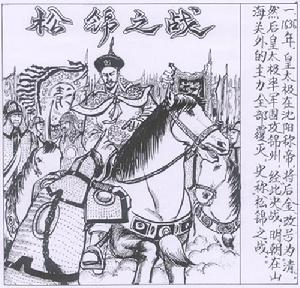 松锦之战
一1636年,皇太极在沈阳称帝,将后金改号为清。
然后皇太极率军围攻锦州,经此决战,明朝在山
海关外的主力全部覆灭,史称松锦之战。